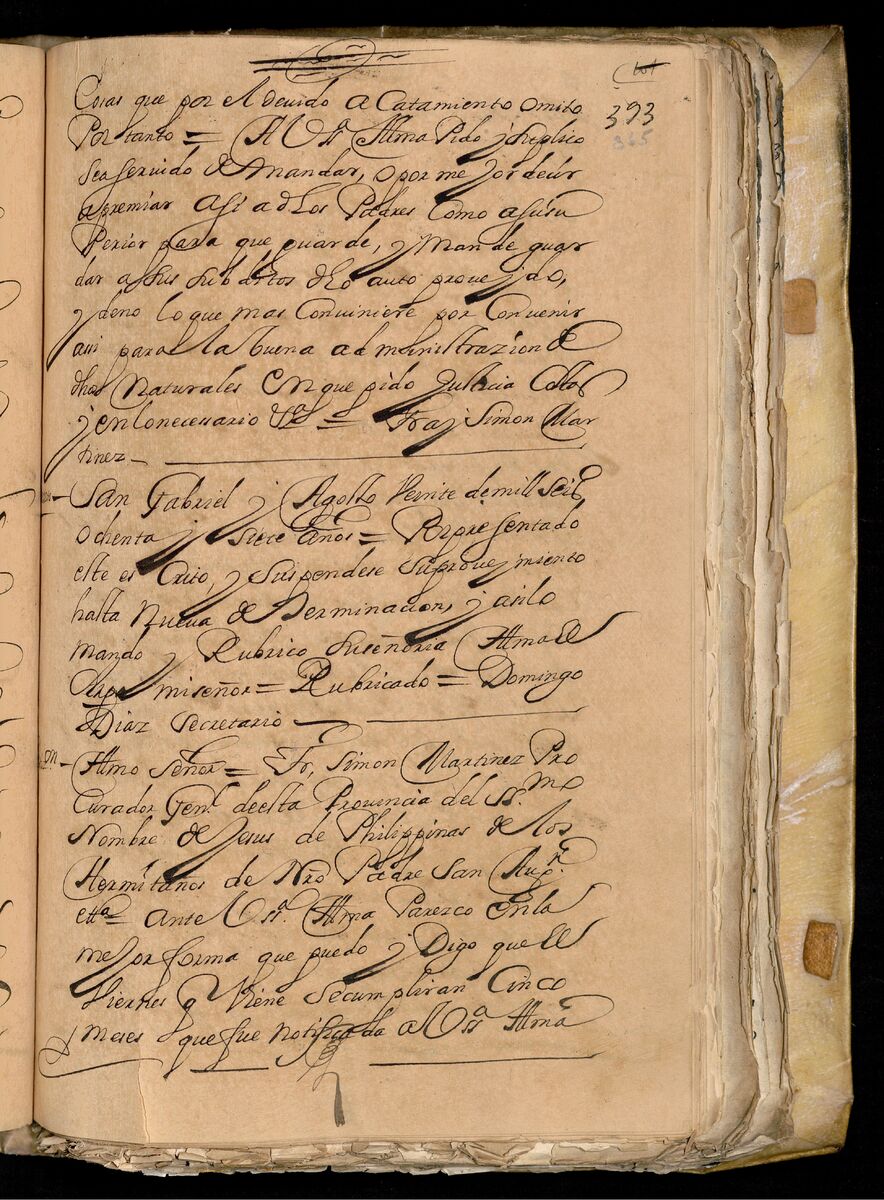 393
365
Cosas que por el deuido a Catamiento omito
Por tanto = A VSª Illma Pido y suplico
sea seruido de Mandar, o por mejor decir
apremiar asi a dhos Padres Como a su su
Perior para que guarde, y Mande guar
dar a sus subditos dho auto proueydo,
y de no lo que mas Conuiniere por Conuenir
assi para la buena administrazion de
dhos Naturales en que pido Justicia Costas
y en lo necessario &ª = Fray Simon Mar
tinez _
San Gabriel y Agosto Veinte de mill seisº
ochenta y siete años = Por presentado
este esCrito, y suspendese su proueymiento
hasta Nueua determinacion, y asi lo
mando y Rubrico su señoria Illma el
Arpo mi señor = Rubricado = Domingo
Diaz Secretario
Illmo Señor = Fr, Simon Martinez Pro
Curador Genl de esta Prouincia del SSmo
Nombre de Jesus de Philippinas de los
Hermitaños de Nro Padre San Augn
ettª ante VSª Illma Parezco en la
mejor forma que puedo y Digo que el
Viernes q Viene se cumpliran Cinco
meses que fue notificada a VSª Illma